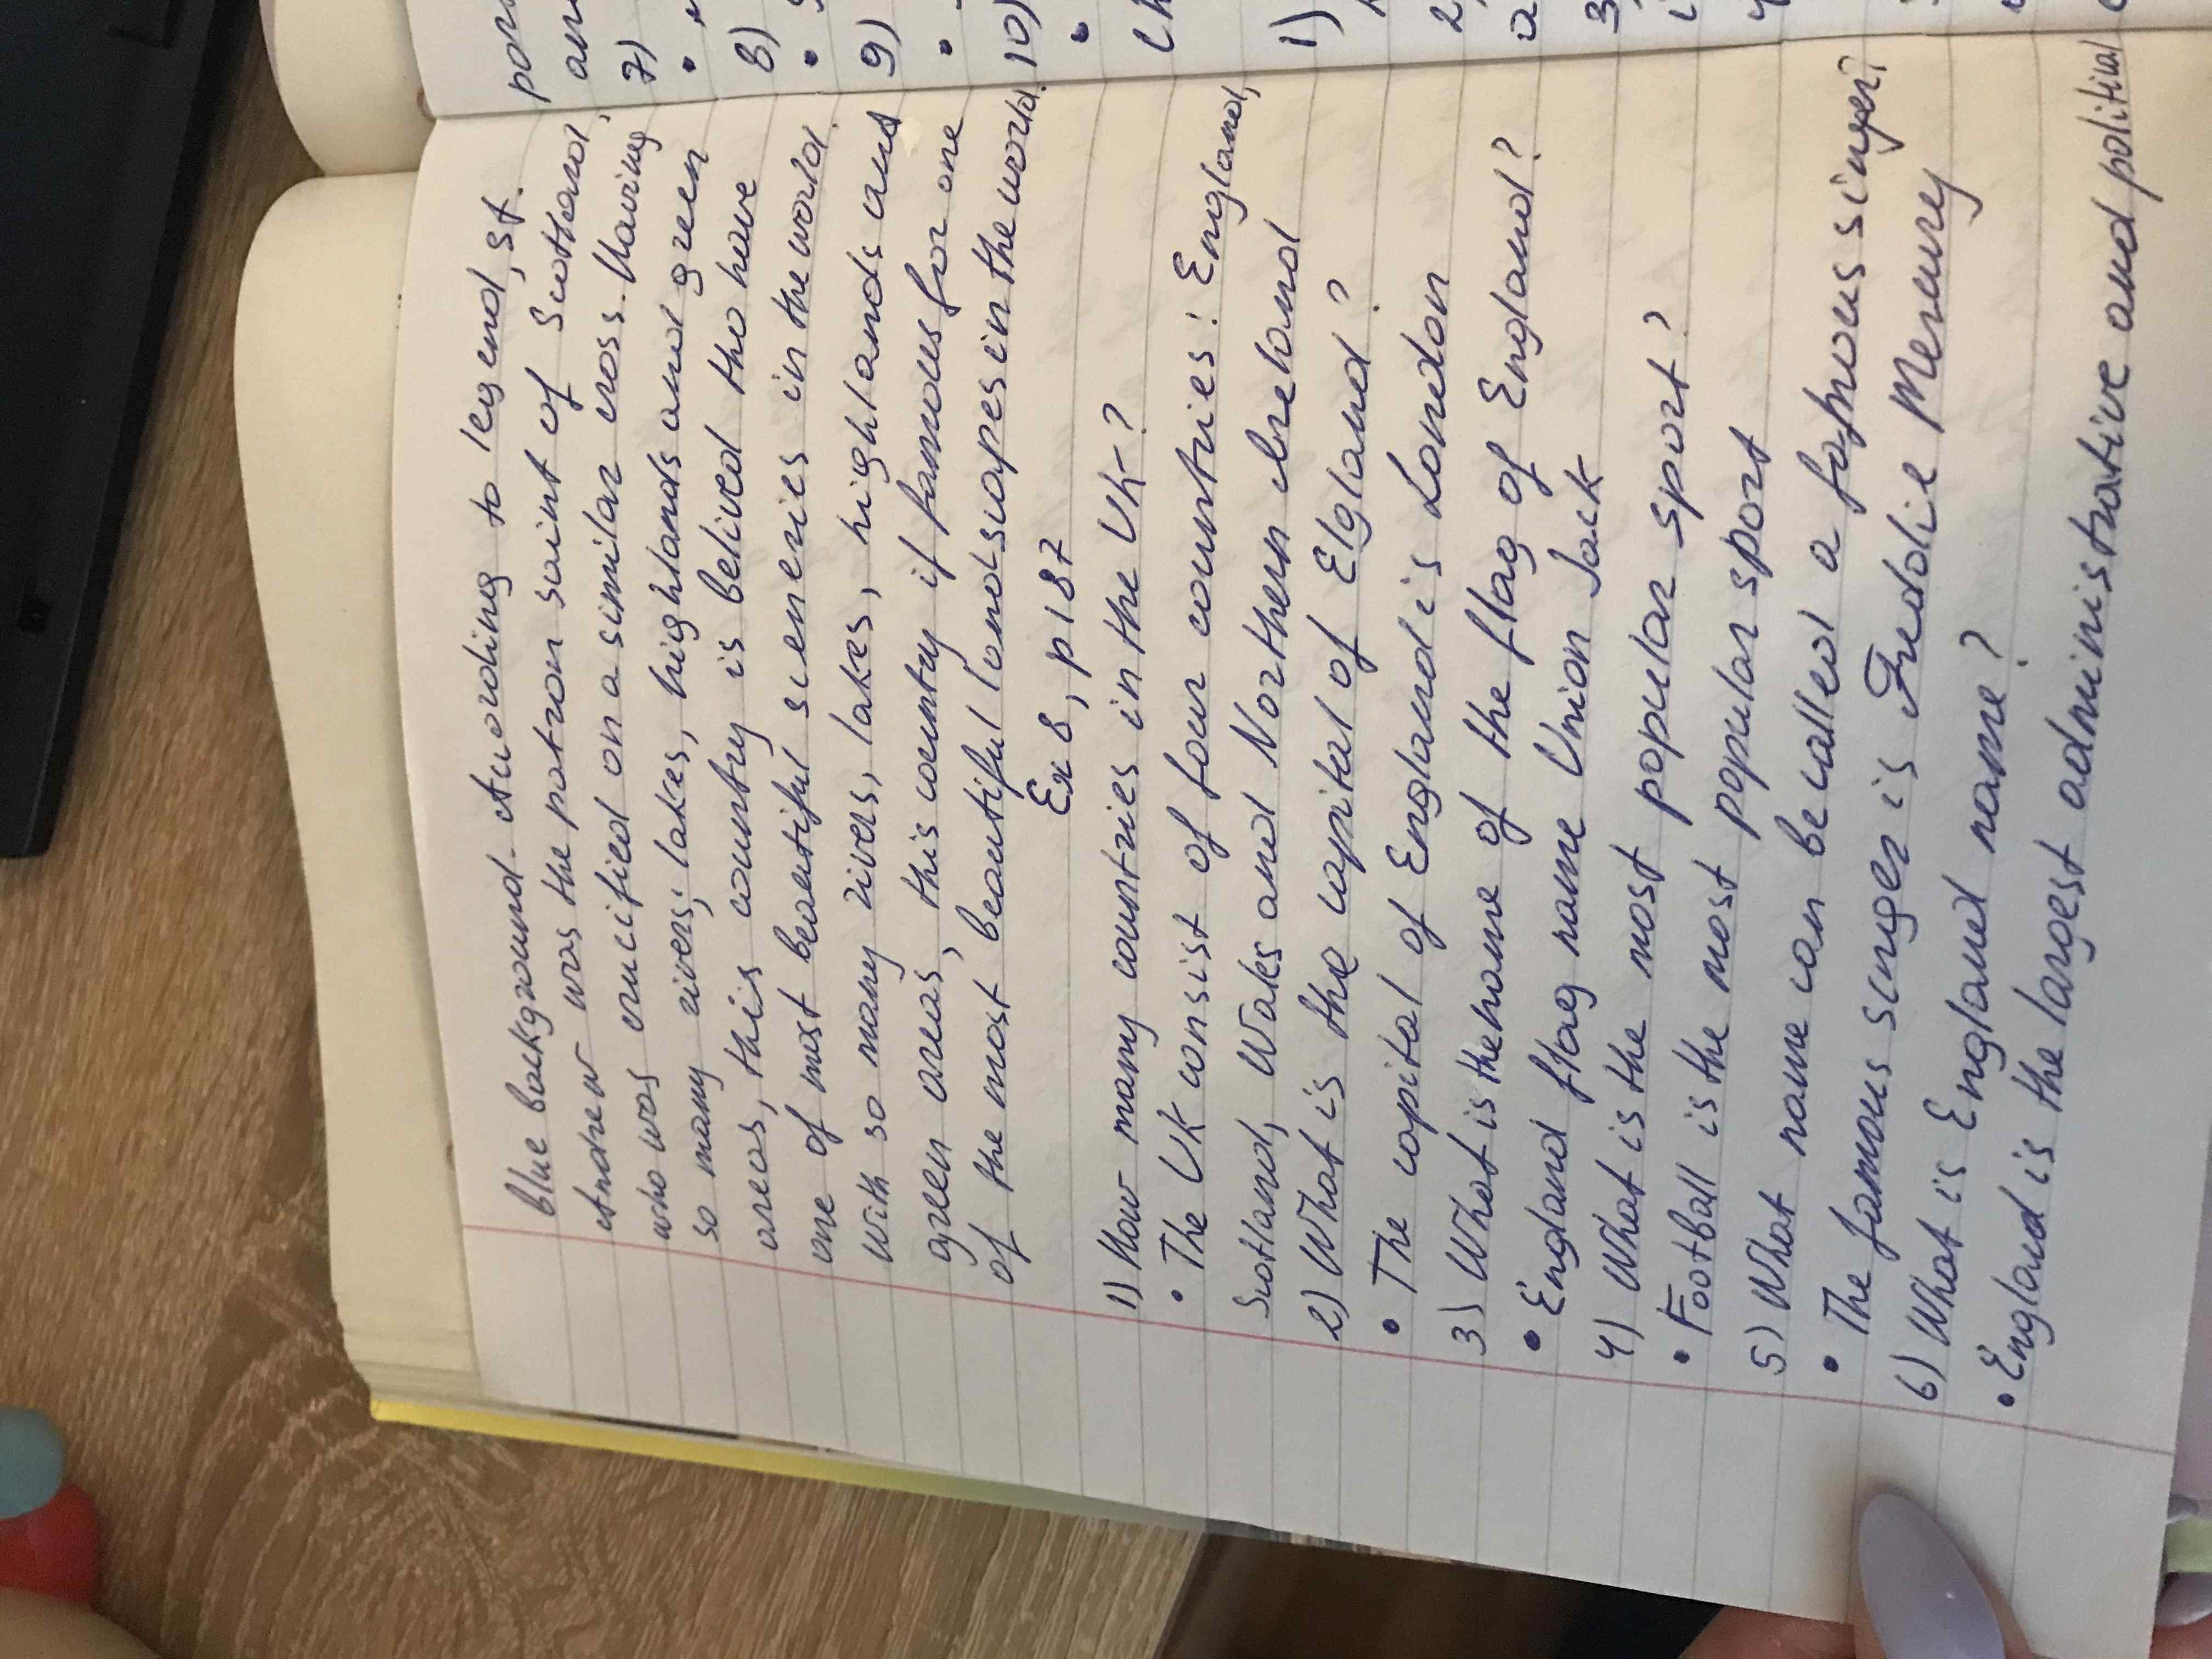 blue background. According to legend, St.
Andrew was the patron saint of Scotland,
who was crucified on a similar cross. Having
so many rivers, lakes, highlands and green
areas, this country is belived tho have
one of most beautiful sceneries in the world.
With so many rivers, lakes, highlands and
green areas, this country if famous for one
of the most beautiful landscapes in the world.
Ex 8, p 187
1) How many countries in the UK?
• The UK consist of four countries: England,
Scotland, Wales and Northern Ireland
2) What is the capital of Elgland?
• The capital of England is London
3) What is the name of the flag of England?
• England flag name Union Jack
4) What is the most popular sport?
• Football is the most popular sport
5) What name can be called a famous singer?
• The famous singer is Freddie Mercury
6) What is England name?
• England is the largest administrative and political
7)
8)
9)
10)
1)